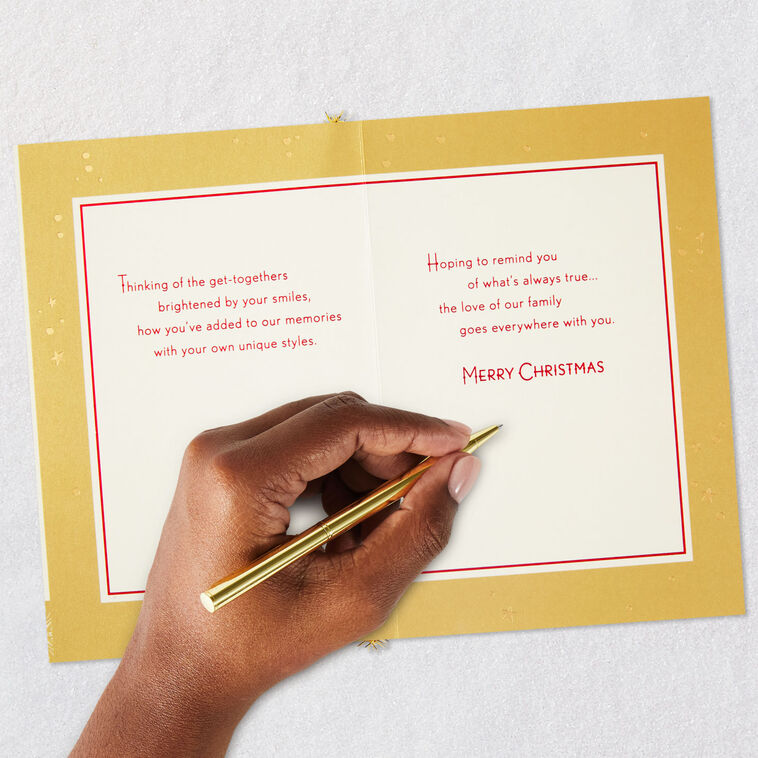 Thinking of the get-togethers
brightened by your smiles,
how you've added to our memories
with your own unique styles.
Hoping to remind you
of what's always true...
the love of our family
goes everywhere with you.
MERRY CHRISTMAS